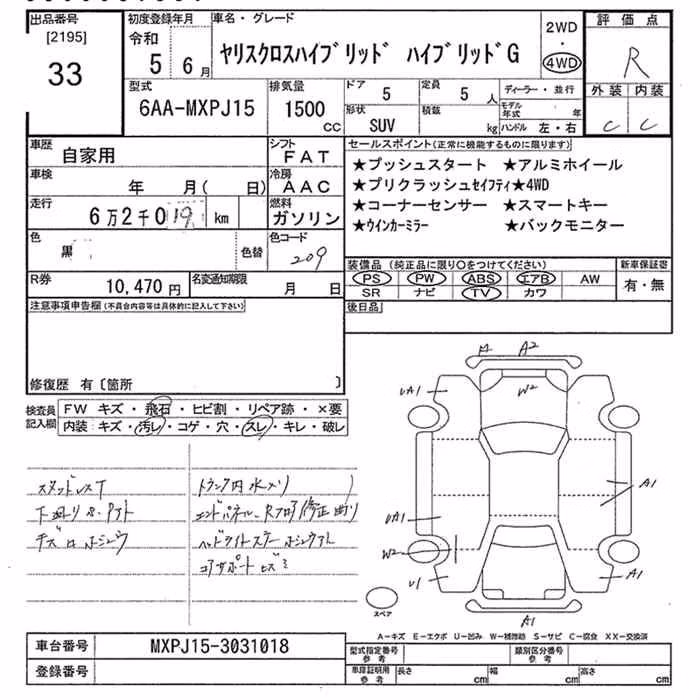 出品番号
[2195]
33
初度登録年月
令和
5 6月
車名・グレード
ヤリスクロスハイブリッド ハイブリッドG
2WD
・
4WD
評価点
R
外装 内装
C C
型式
6AA-MXPJ15
排気量
1500
CC
ドア
5
定員
5 人
形状
SUV
積載
kg
ディーラー・並行
モデル年式 年
ハンドル 左・右
車歴
自家用
シフト
FAT
車検
年 月( 日)
冷房
AAC
走行
6万2千019 km
燃料
ガソリン
色
黒
色替
色コード
209
R券
10,470円
名変通知期限
月 日
セールスポイント(正常に機能するものに限ります)
★プッシュスタート ★アルミホイール
★プリクラッシュセイフティ★4WD
★コーナーセンサー ★スマートキー
★ウインカーミラー ★バックモニター
装備品 (純正品に限り○をつけてください)
PS PW ABS エアB AW
SR ナビ TV カワ
新車保証書
有・無
後日品
注意事項申告欄(不具合内容等は具体的に記入して下さい)
修復歴 有〔箇所 〕
検査員
記入欄
FW キズ・飛石・ヒビ割・リペア跡・×要
内装:キズ・汚レ・コゲ・穴・スレ・キレ・破レ
トランク内水メリ
エンドパネル、Rフロア修正跡り
コアサポートヒズミ
A A2
UA1
W2
A1
UA1
W2
U1
A1
A1
スペア
A-キズ E-エクボ U-凹み W-補修跡 S-サビ C-腐食 XX-交換済
車台番号
MXPJ15-3031018
登録番号
型式指定番号
参考
類別区分番号
参考
車庫証明用
参考
長さ cm 幅 cm 高さ cm